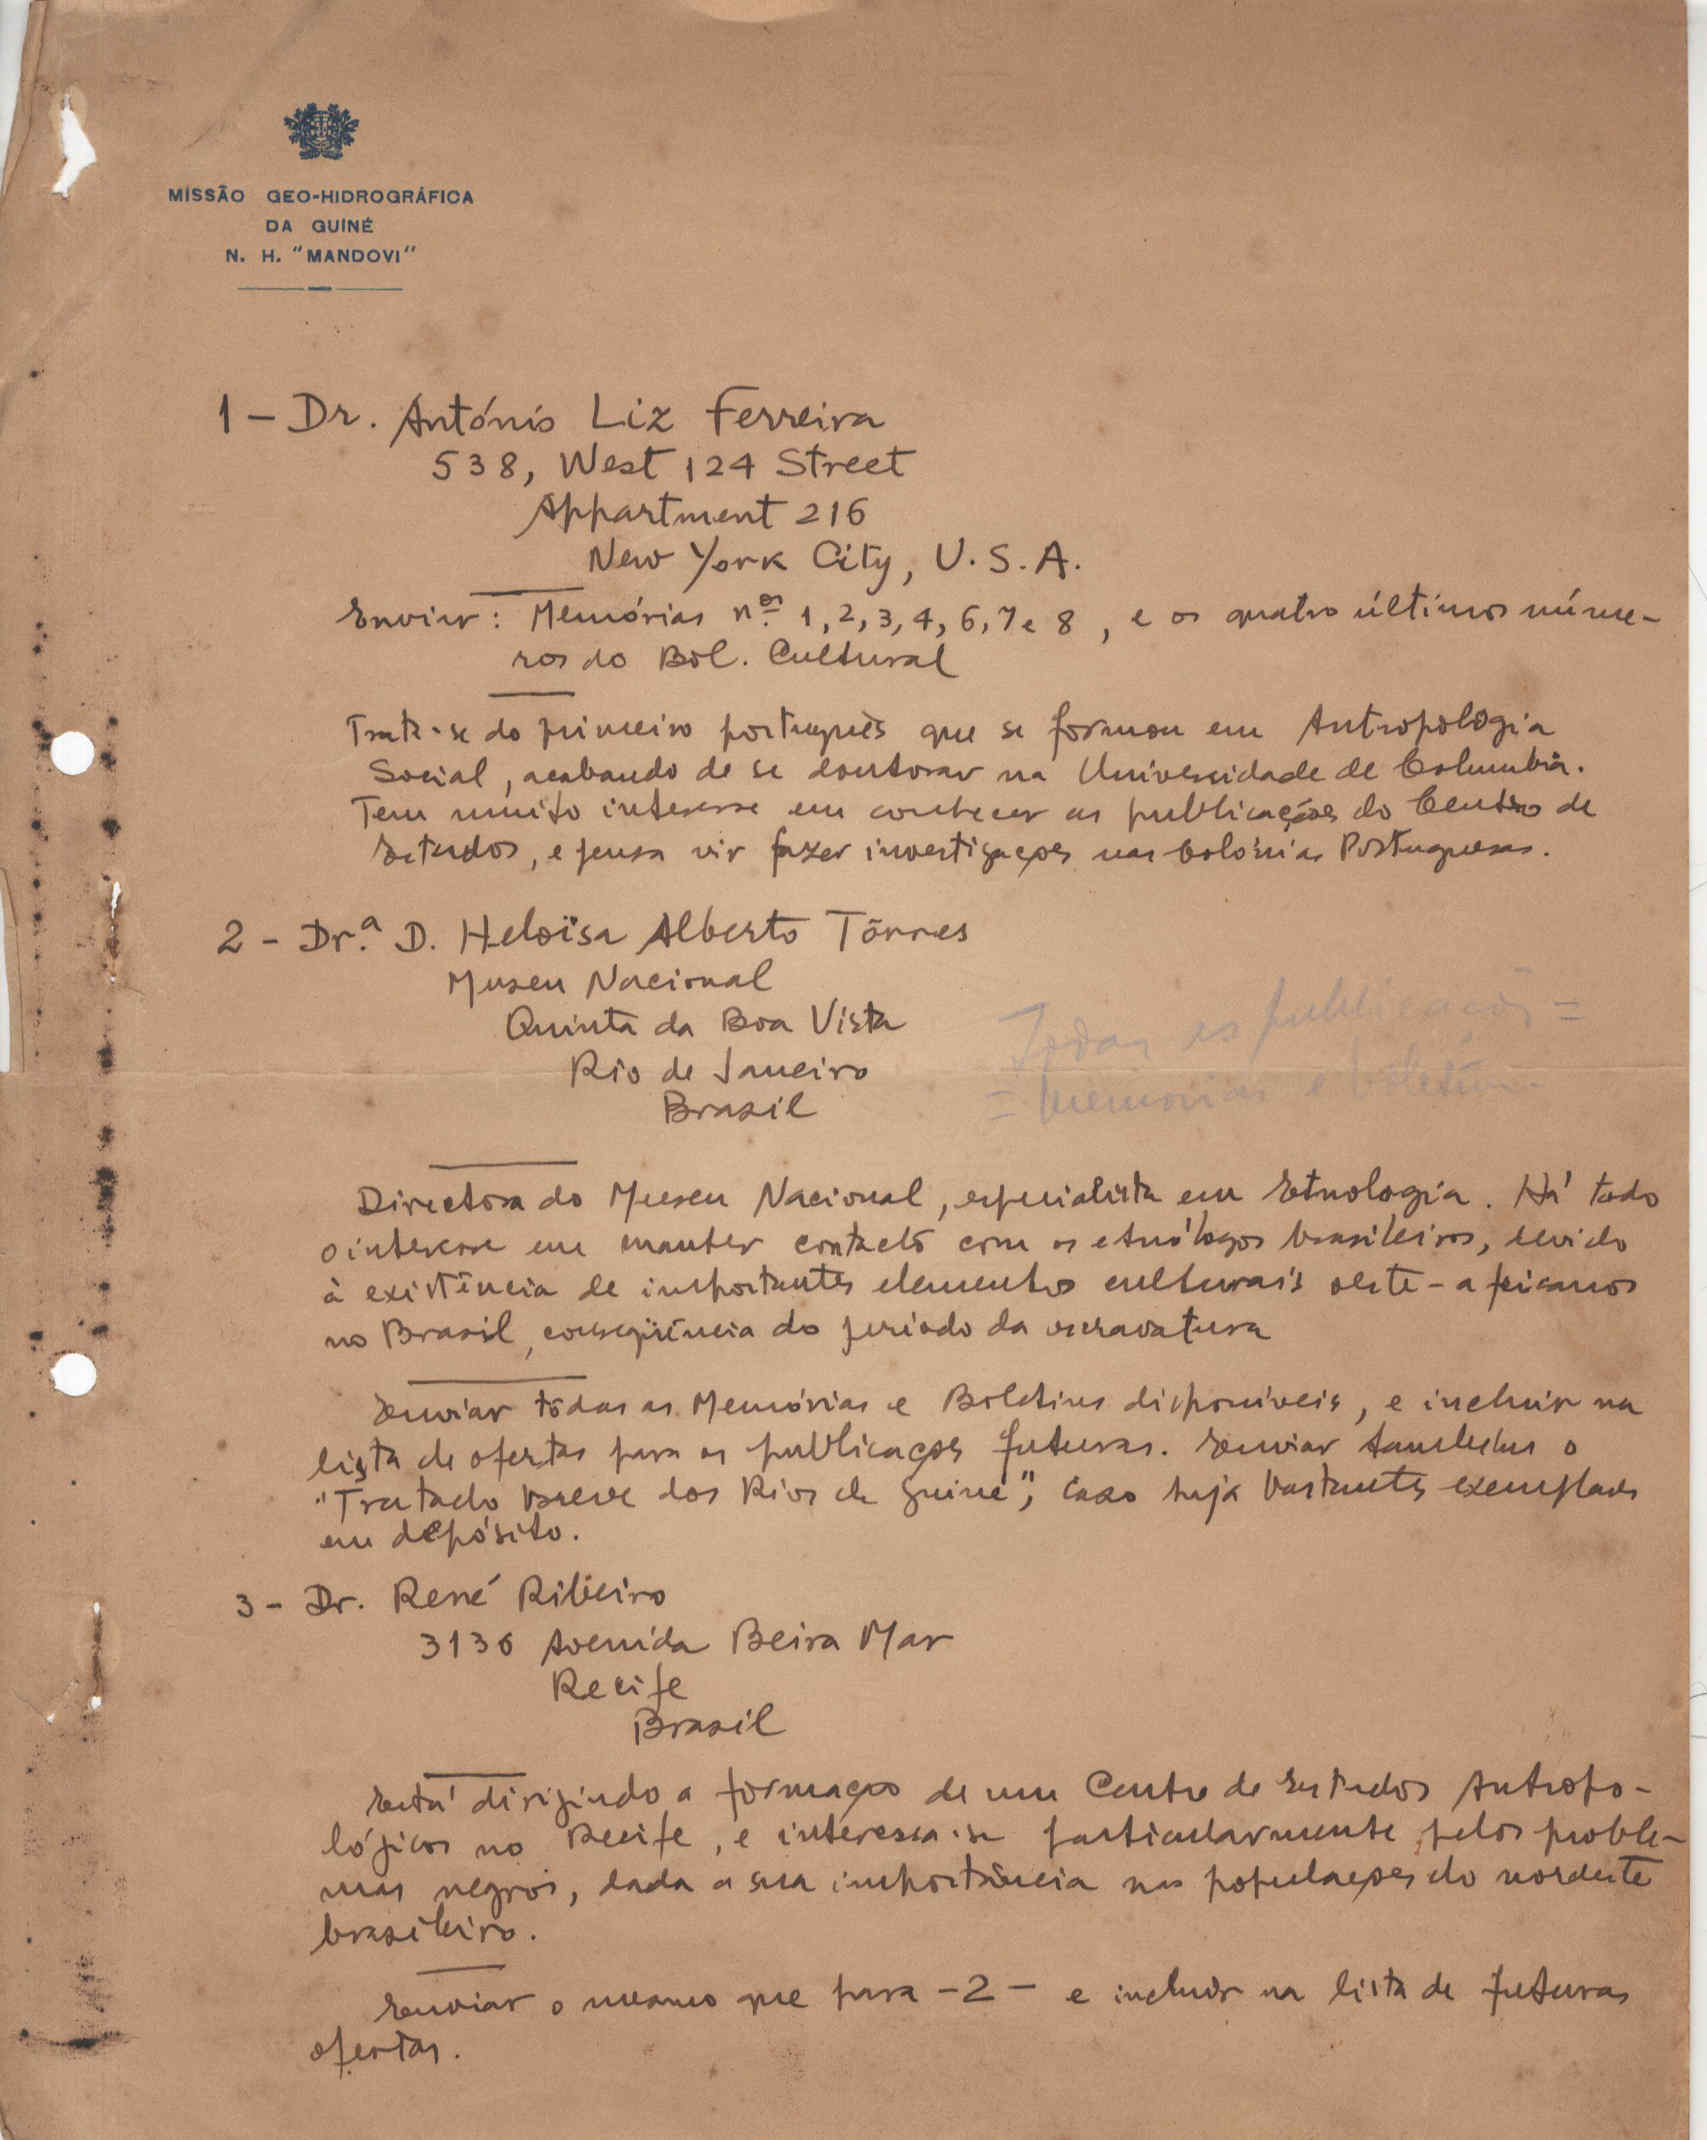 MISSÃO GEO-HIDROGRÁFICA
DA GUINÉ
N. H. "MANDOVI"
1 - Dr. António Liz Ferreira
538, West 124 Street
Appartment 216
New York City, U.S.A.
Enviar: Memórias nos. 1, 2, 3, 4, 6, 7 e 8, e os quatro últimos núme-
ros do Bol. Cultural
Trata-se do primeiro português que se formou em Antropologia
Social, acabando de se doutorar na Universidade de Columbia.
Tem muito interesse em conhecer as publicações do Centro de
Estudos, e pensa vir fazer investigações nas Colónias Portuguesas.
2 - Dr.ª D. Heloïsa Alberto Tôrres
Museu Nacional
Quinta da Boa Vista
Rio de Janeiro
Brasil
Todas as publicações =
= Memórias e boletim
Directora do Museu Nacional, especialista em Etnologia. Há todo
o interesse em manter contacto com os etnólogos brasileiros, devido
à existência de importantes elementos culturais oeste-africanos
no Brasil, conseqüência do período da escravatura
Enviar tôdas as Memórias e Boletins disponíveis, e incluir na
lista de ofertas para as publicações futuras. Enviar também o
"Tratado breve dos Rios de Guiné", caso haja bastantes exemplares
em depósito.
3 - Dr. René Ribeiro
3136 Avenida Beira Mar
Recife
Brasil
Está dirigindo a formação de um Centro de Estudos Antropo-
lógicos no Recife, e interessa-se particularmente pelos proble-
mas negros, dada a sua importância nas populações do nordeste
brasileiro.
Enviar o mesmo que para -2- e incluir na lista de futuras
ofertas.